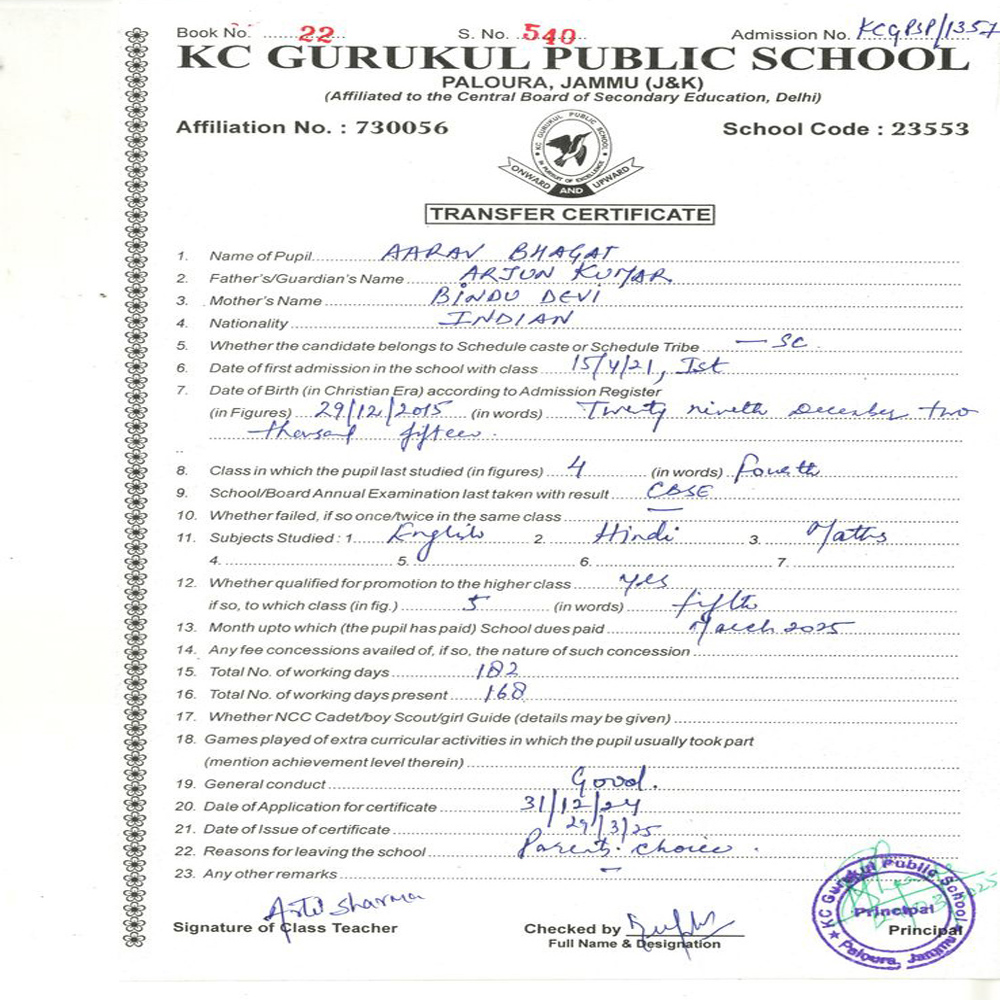 Book No. 22 S. No. 540 Admission No. KCGPSP/1357
KC GURUKUL PUBLIC SCHOOL
PALOURA, JAMMU (J&K)
(Affiliated to the Central Board of Secondary Education, Delhi)
Affiliation No. : 730056 School Code : 23553
KC GURUKUL PUBLIC SCHOOL
IN PURSUIT OF EXCELLENCE
ONWARD AND UPWARD
TRANSFER CERTIFICATE
1. Name of Pupil AARAV BHAGAT
2. Father's/Guardian's Name ARJUN KUMAR
3. Mother's Name BINDU DEVI
4. Nationality INDIAN
5. Whether the candidate belongs to Schedule caste or Schedule Tribe — SC
6. Date of first admission in the school with class 15/4/21, Ist
7. Date of Birth (in Christian Era) according to Admission Register
(in Figures) 29/12/2015 (in words) Twenty nineth December two
thousand fifteen.
8. Class in which the pupil last studied (in figures) 4 (in words) fourth
9. School/Board Annual Examination last taken with result CBSE
10. Whether failed, if so once/twice in the same class —
11. Subjects Studied : 1. English 2. Hindi 3. Maths
4. 5. 6. 7.
12. Whether qualified for promotion to the higher class yes
if so, to which class (in fig.) 5 (in words) fifth
13. Month upto which (the pupil has paid) School dues paid March 2025
14. Any fee concessions availed of, if so, the nature of such concession
15. Total No. of working days 182
16. Total No. of working days present 168
17. Whether NCC Cadet/boy Scout/girl Guide (details may be given)
18. Games played of extra curricular activities in which the pupil usually took part
(mention achievement level therein)
19. General conduct Good.
20. Date of Application for certificate 31/12/24
21. Date of Issue of certificate 29/3/25
22. Reasons for leaving the school Parents choice.
23. Any other remarks —
Arti Sharma
Signature of Class Teacher Checked by Principal
Full Name & Designation
KC Gurukul Public School
Principal
Paloura, Jammu